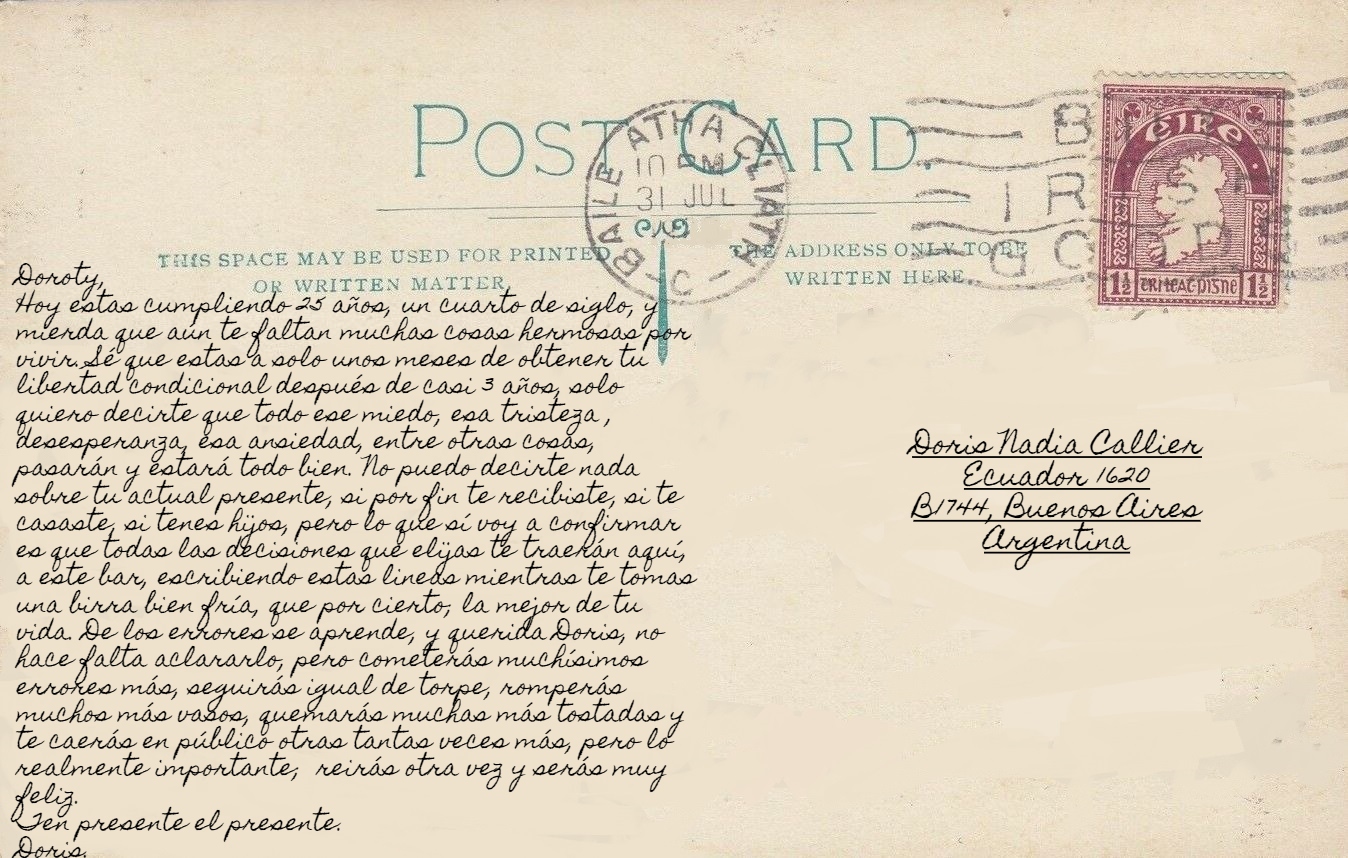 POST CARD.
BAILE ATHA CLIATH
10 PM
31 JUL
C
EIRE
1½ 1½
THIS SPACE MAY BE USED FOR PRINTED
OR WRITTEN MATTER
THE ADDRESS ONLY TO BE
WRITTEN HERE
Doroty,
Hoy estas cumpliendo 25 años, un cuarto de siglo, y
mierda que aún te faltan muchas cosas hermosas por
vivir. Sé que estas a solo unos meses de obtener tu
libertad condicional después de casi 3 años, solo
quiero decirte que todo ese miedo, esa tristeza ,
desesperanza, esa ansiedad, entre otras cosas,
pasarán y estará todo bien. No puedo decirte nada
sobre tu actual presente, si por fin te recibiste, si te
casaste, si tenes hijos, pero lo que sí voy a confirmar
es que todas las decisiones que elijas te traerán aquí,
a este bar, escribiendo estas lineas mientras te tomas
una birra bien fría, que por cierto, la mejor de tu
vida. De los errores se aprende, y querida Doris, no
hace falta aclararlo, pero cometerás muchísimos
errores más, seguirás igual de torpe, romperás
muchos más vasos, quemarás muchas más tostadas y
te caerás en público otras tantas veces más, pero lo
realmente importante, reirás otra vez y serás muy
feliz.
Ten presente el presente.
Doris.
Doris Nadia Callier
Ecuador 1620
B1744, Buenos Aires
Argentina